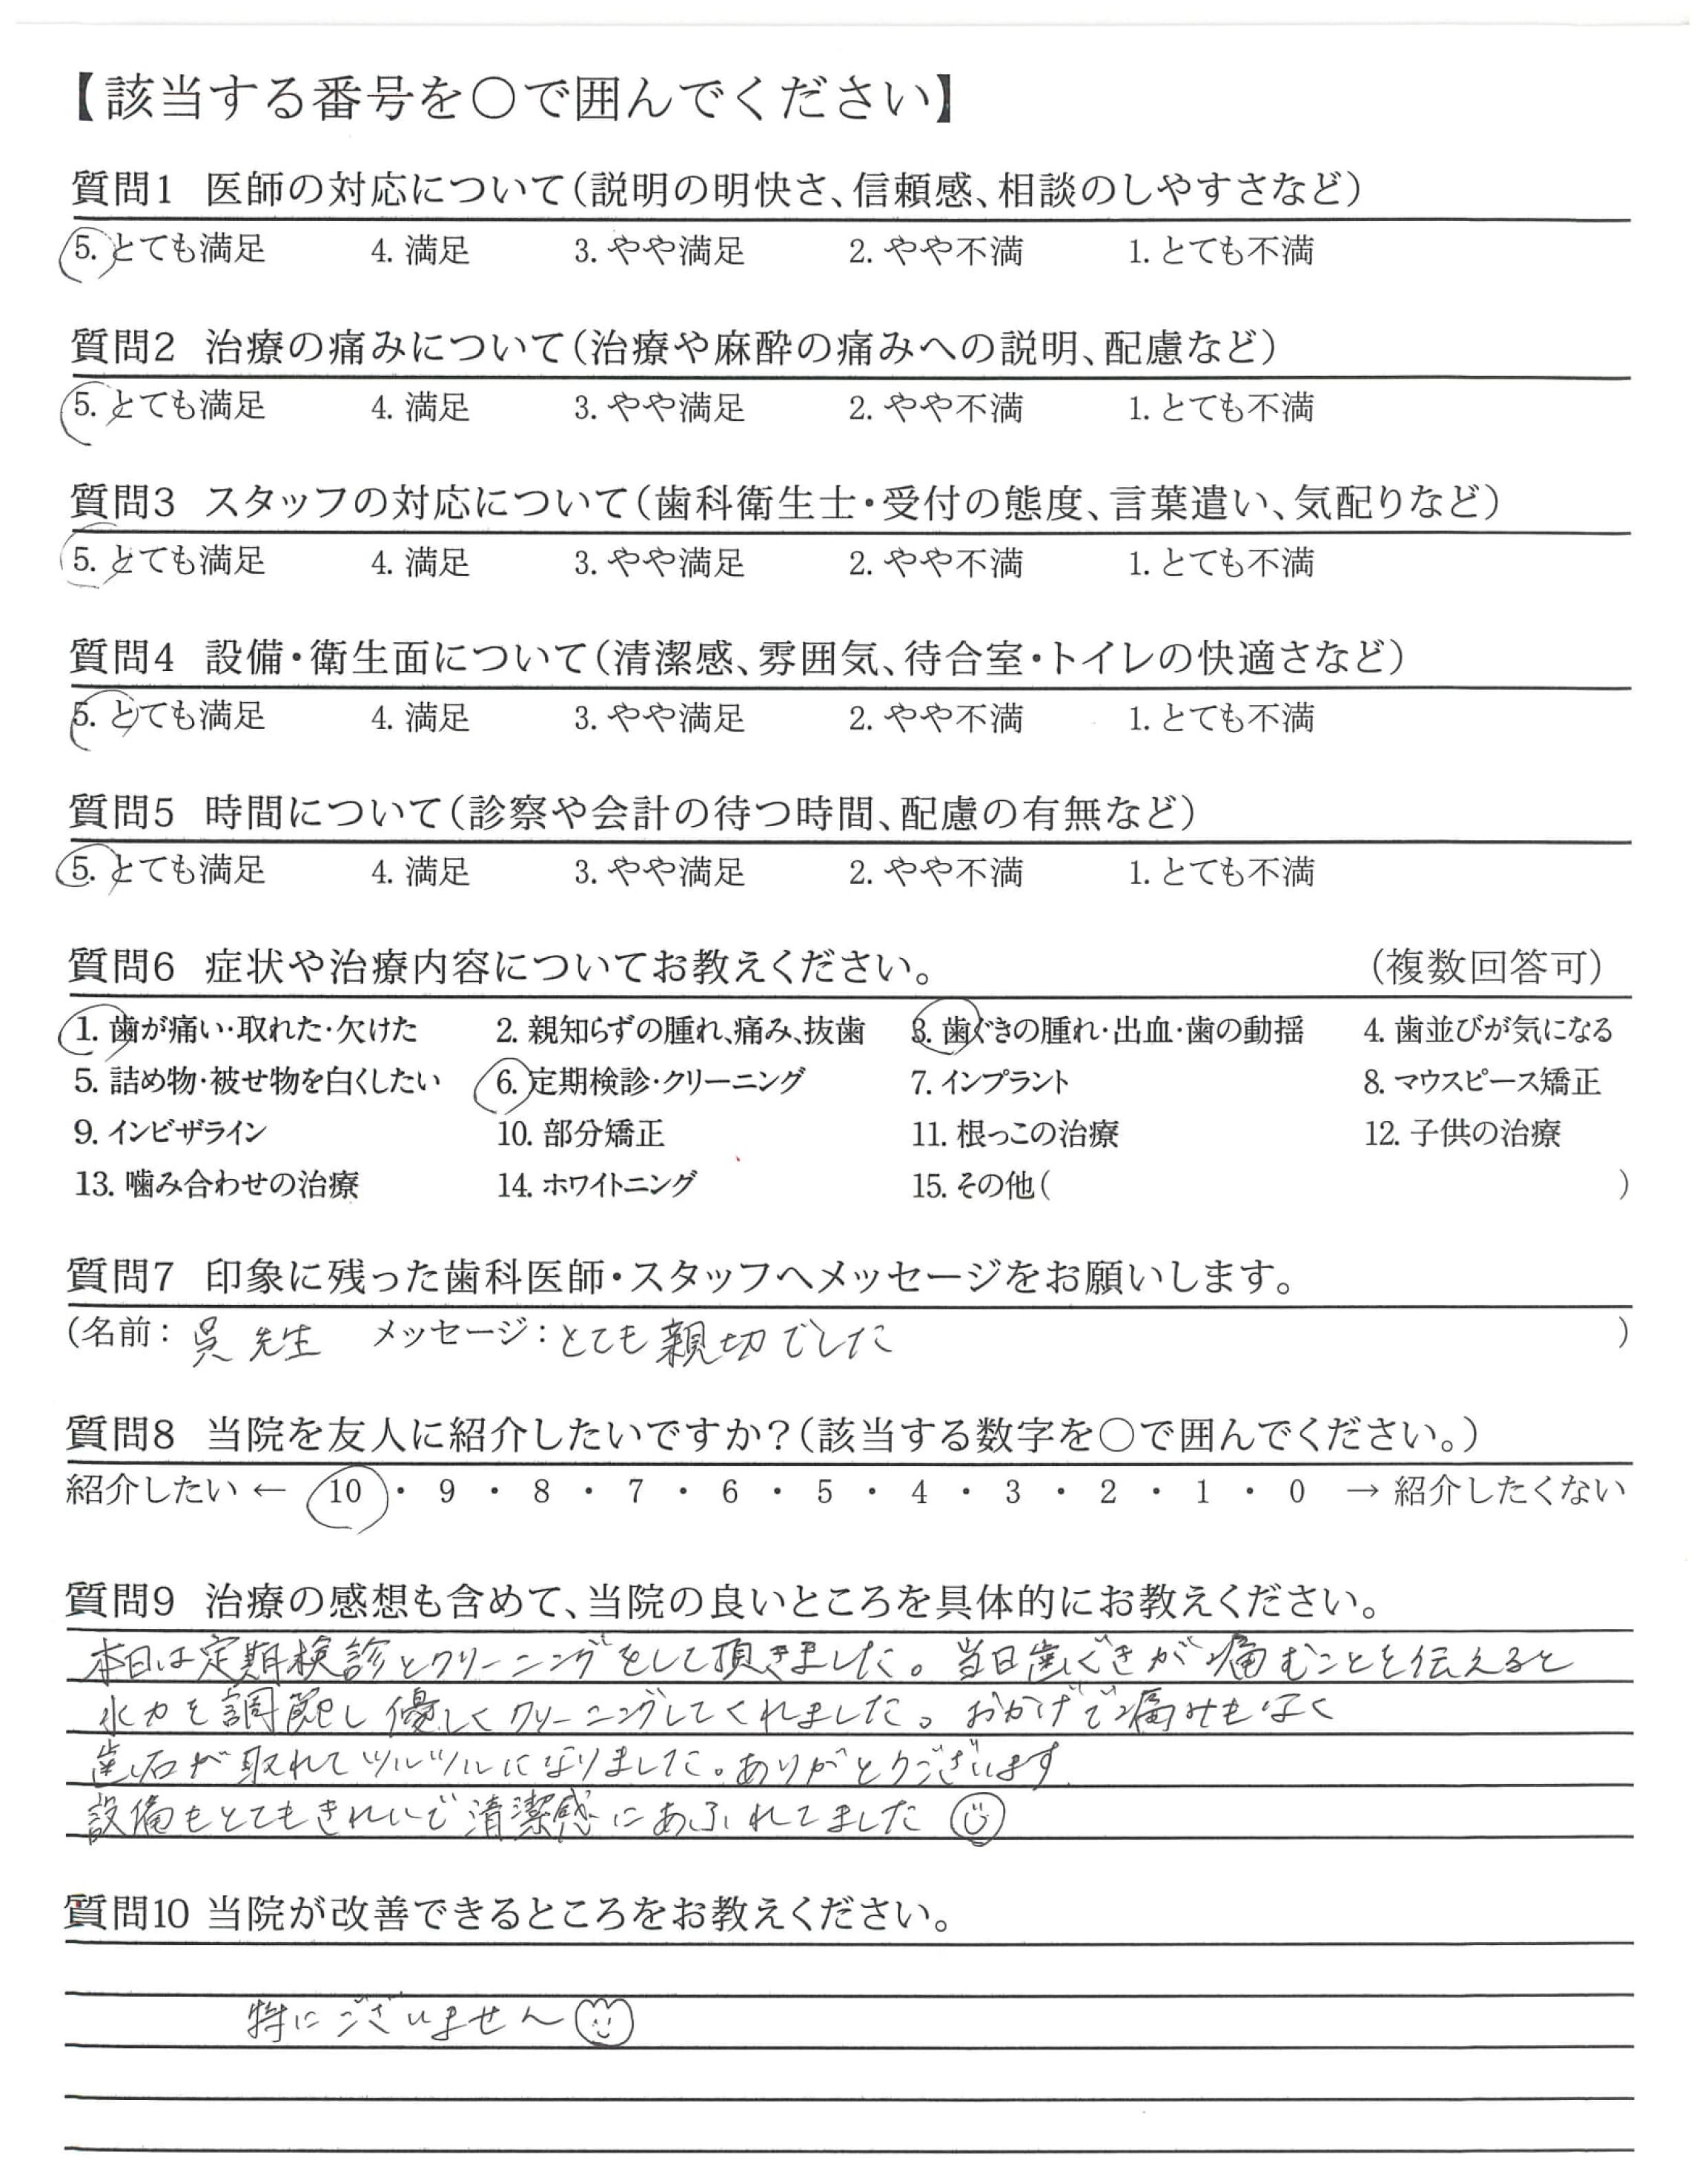 【該当する番号を〇で囲んでください】
質問1 医師の対応について(説明の明快さ、信頼感、相談のしやすさなど)
5. とても満足 4. 満足 3. やや満足 2. やや不満 1. とても不満
質問2 治療の痛みについて(治療や麻酔の痛みへの説明、配慮など)
5. とても満足 4. 満足 3. やや満足 2. やや不満 1. とても不満
質問3 スタッフの対応について(歯科衛生士・受付の態度、言葉遣い、気配りなど)
5. とても満足 4. 満足 3. やや満足 2. やや不満 1. とても不満
質問4 設備・衛生面について(清潔感、雰囲気、待合室・トイレの快適さなど)
5. とても満足 4. 満足 3. やや満足 2. やや不満 1. とても不満
質問5 時間について(診察や会計の待つ時間、配慮の有無など)
5. とても満足 4. 満足 3. やや満足 2. やや不満 1. とても不満
質問6 症状や治療内容についてお教えください。 (複数回答可)
1. 歯が痛い・取れた・欠けた 2. 親知らずの腫れ、痛み、抜歯 3. 歯ぐきの腫れ・出血・歯の動揺 4. 歯並びが気になる
5. 詰め物・被せ物を白くしたい 6. 定期検診・クリーニング 7. インプラント 8. マウスピース矯正
9. インビザライン 10. 部分矯正 11. 根っこの治療 12. 子供の治療
13. 噛み合わせの治療 14. ホワイトニング 15. その他( )
質問7 印象に残った歯科医師・スタッフへメッセージをお願いします。
(名前: 呉先生 メッセージ: とても親切でした )
質問8 当院を友人に紹介したいですか?(該当する数字を〇で囲んでください。)
紹介したい ← 10 ・ 9 ・ 8 ・ 7 ・ 6 ・ 5 ・ 4 ・ 3 ・ 2 ・ 1 ・ 0 → 紹介したくない
質問9 治療の感想も含めて、当院の良いところを具体的にお教えください。
本日は定期検診とクリーニングをして頂きました。当日歯ぐきが痛むことを伝えると
水力を調節し優しくクリーニングしてくれました。おかげで痛みもなく
歯石が取れてツルツルになりました。ありがとうございます
設備もとてもきれいで清潔感にあふれてました
質問10 当院が改善できるところをお教えください。
特にございません